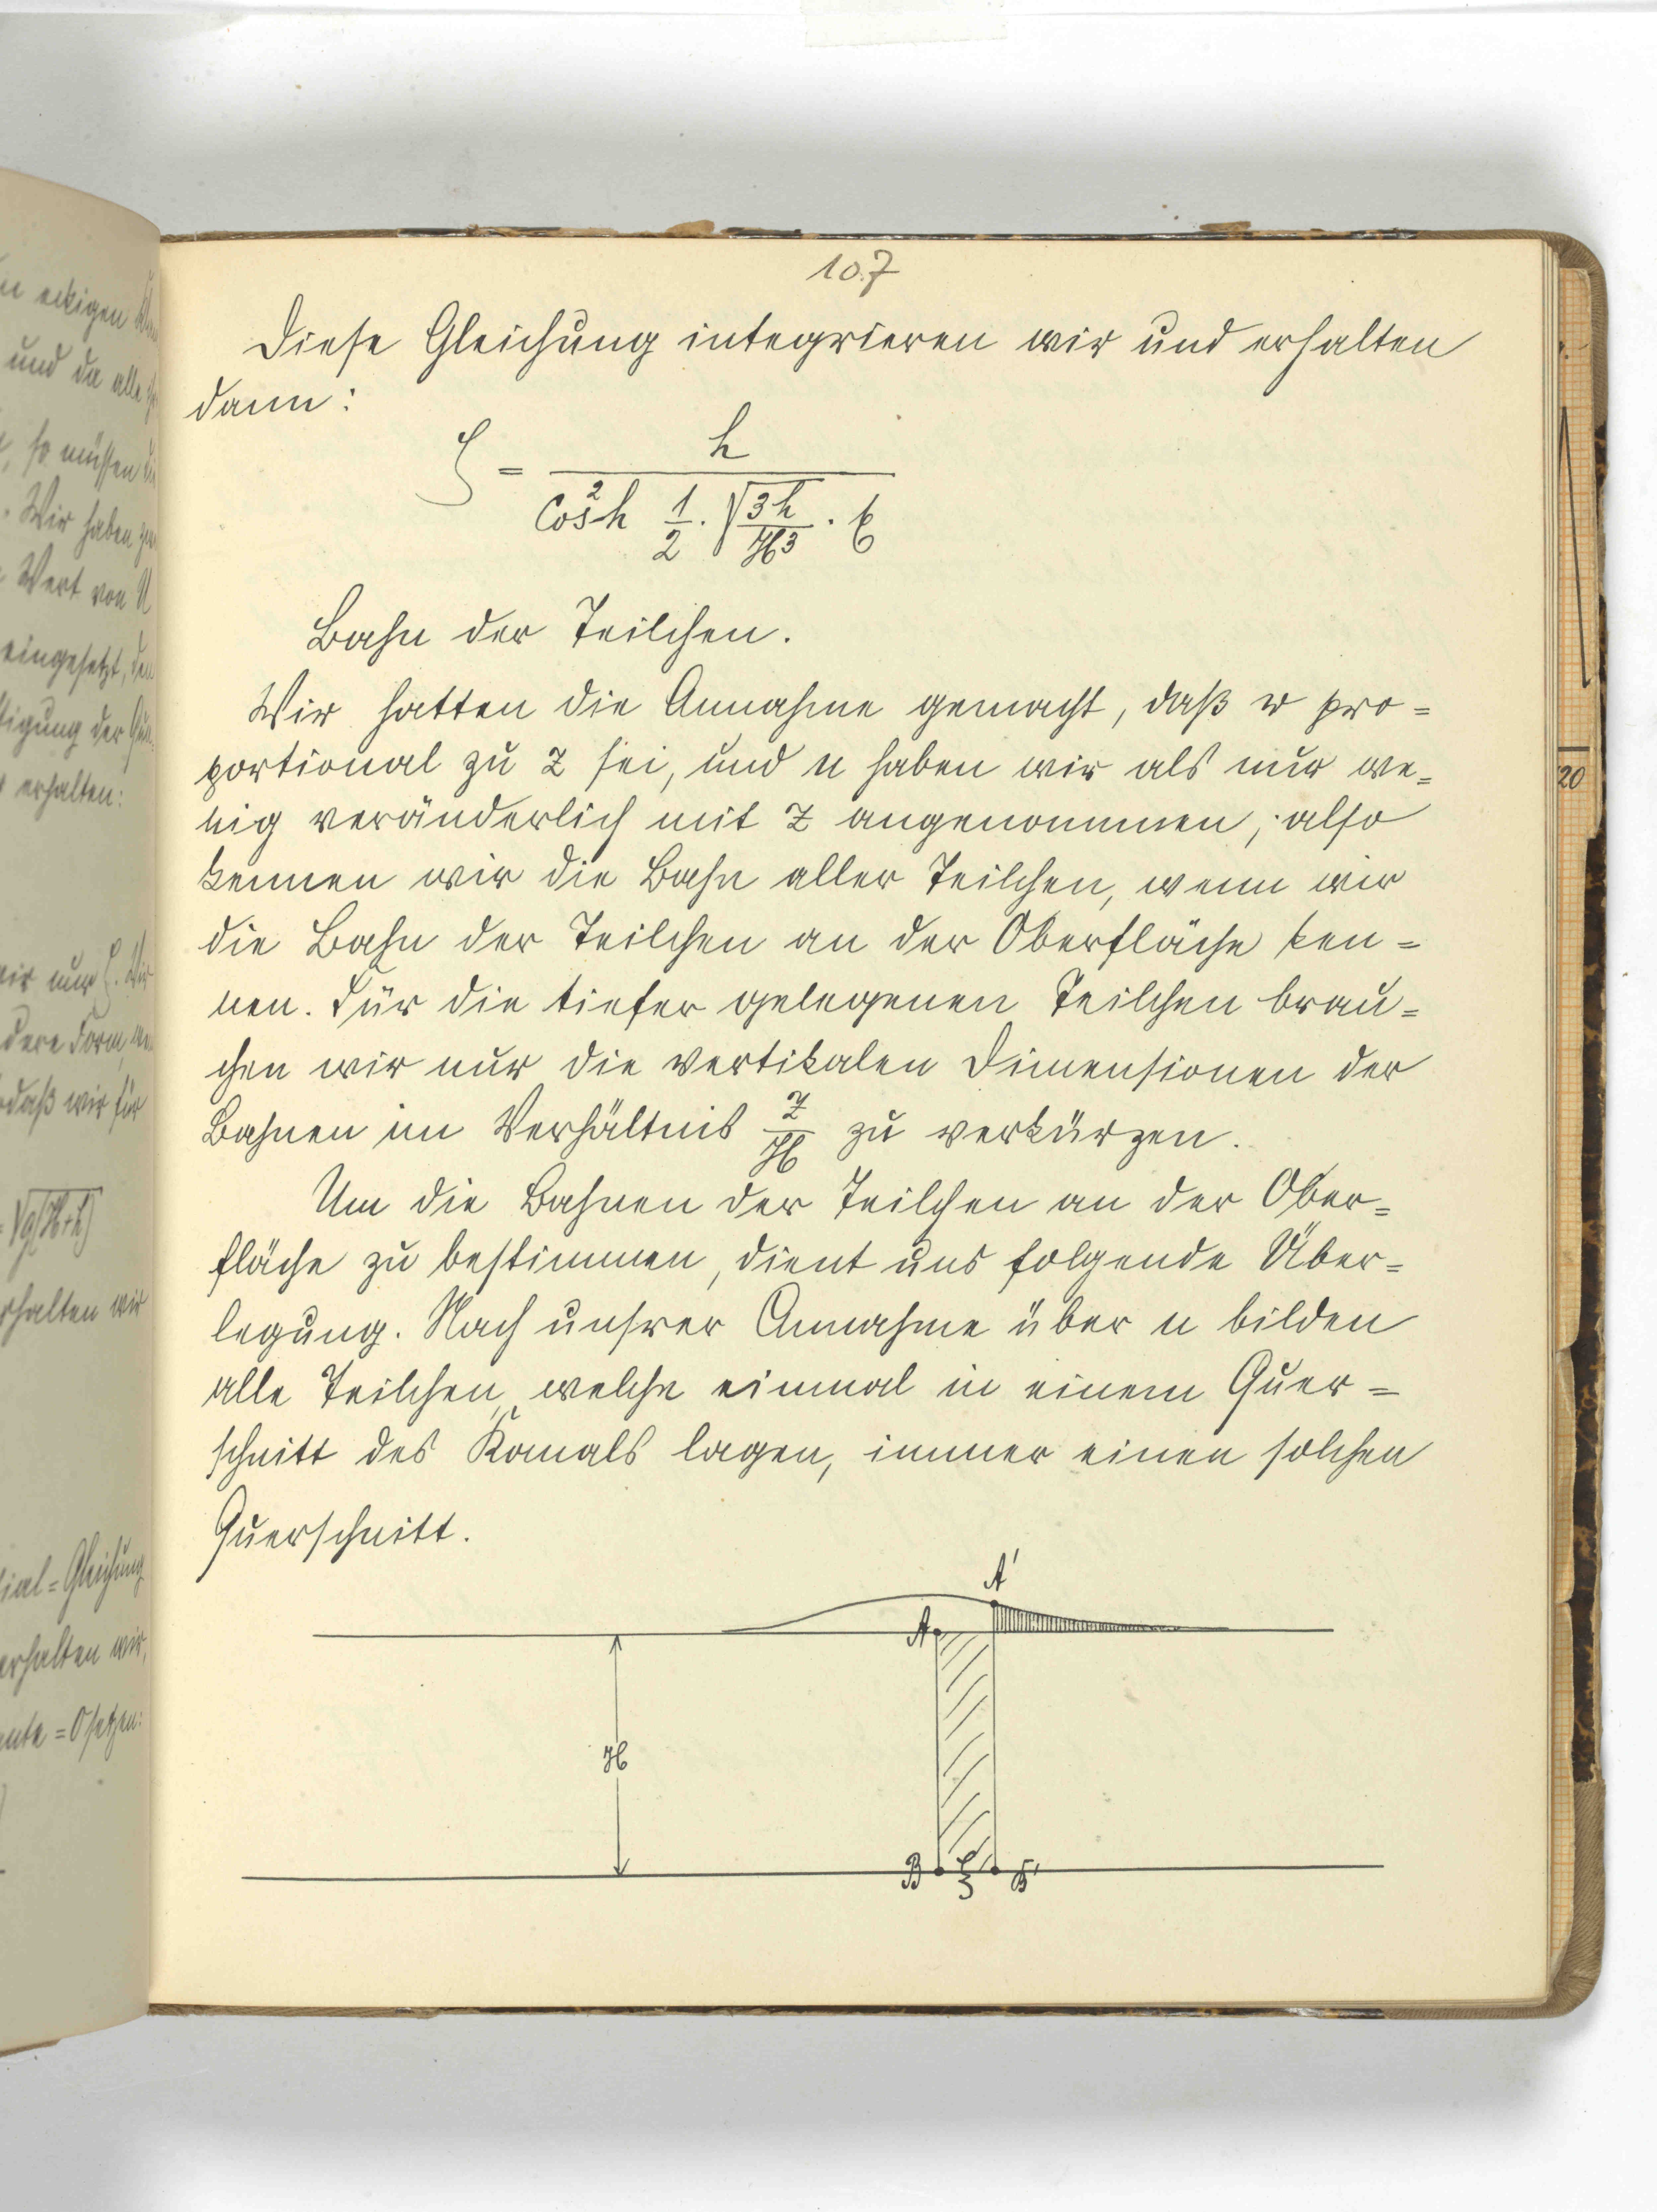 107
Diese Gleichung integrieren wir und erhalten
dann:
ζ = h / (cos²h 1/2 · √(3h/H³) · ξ)
Bahn der Teilchen.
Wir hatten die Annahme gemacht, daß w pro=
portional zu z sei, und u haben wir als nur we=
nig veränderlich mit z angenommen, also
kennen wir die Bahn aller Teilchen, wenn wir
die Bahn der Teilchen an der Oberfläche ken=
nen. Für die tiefer gelegenen Teilchen brau=
chen wir nur die vertikalen Dimensionen der
Bahnen im Verhältnis z/H zu verkürzen.
Um die Bahnen der Teilchen an der Ober=
fläche zu bestimmen, dient uns folgende Über=
legung. Nach unsrer Annahme über u bilden
alle Teilchen, welche einmal in einem Quer=
schnitt des Kanals lagen, immer einen solchen
Querschnitt.
A'
A
H
B ξ B'
20
eckigen
und da alle
so müssen die
Wir haben
Wert von
eingesetzt, den
erhalten:
wir nur ζ. Wir
dere Form
daß wir für
√g(H+h)
erhalten wir
tial=Gleichung
erhalten wir,
=0 setzen: